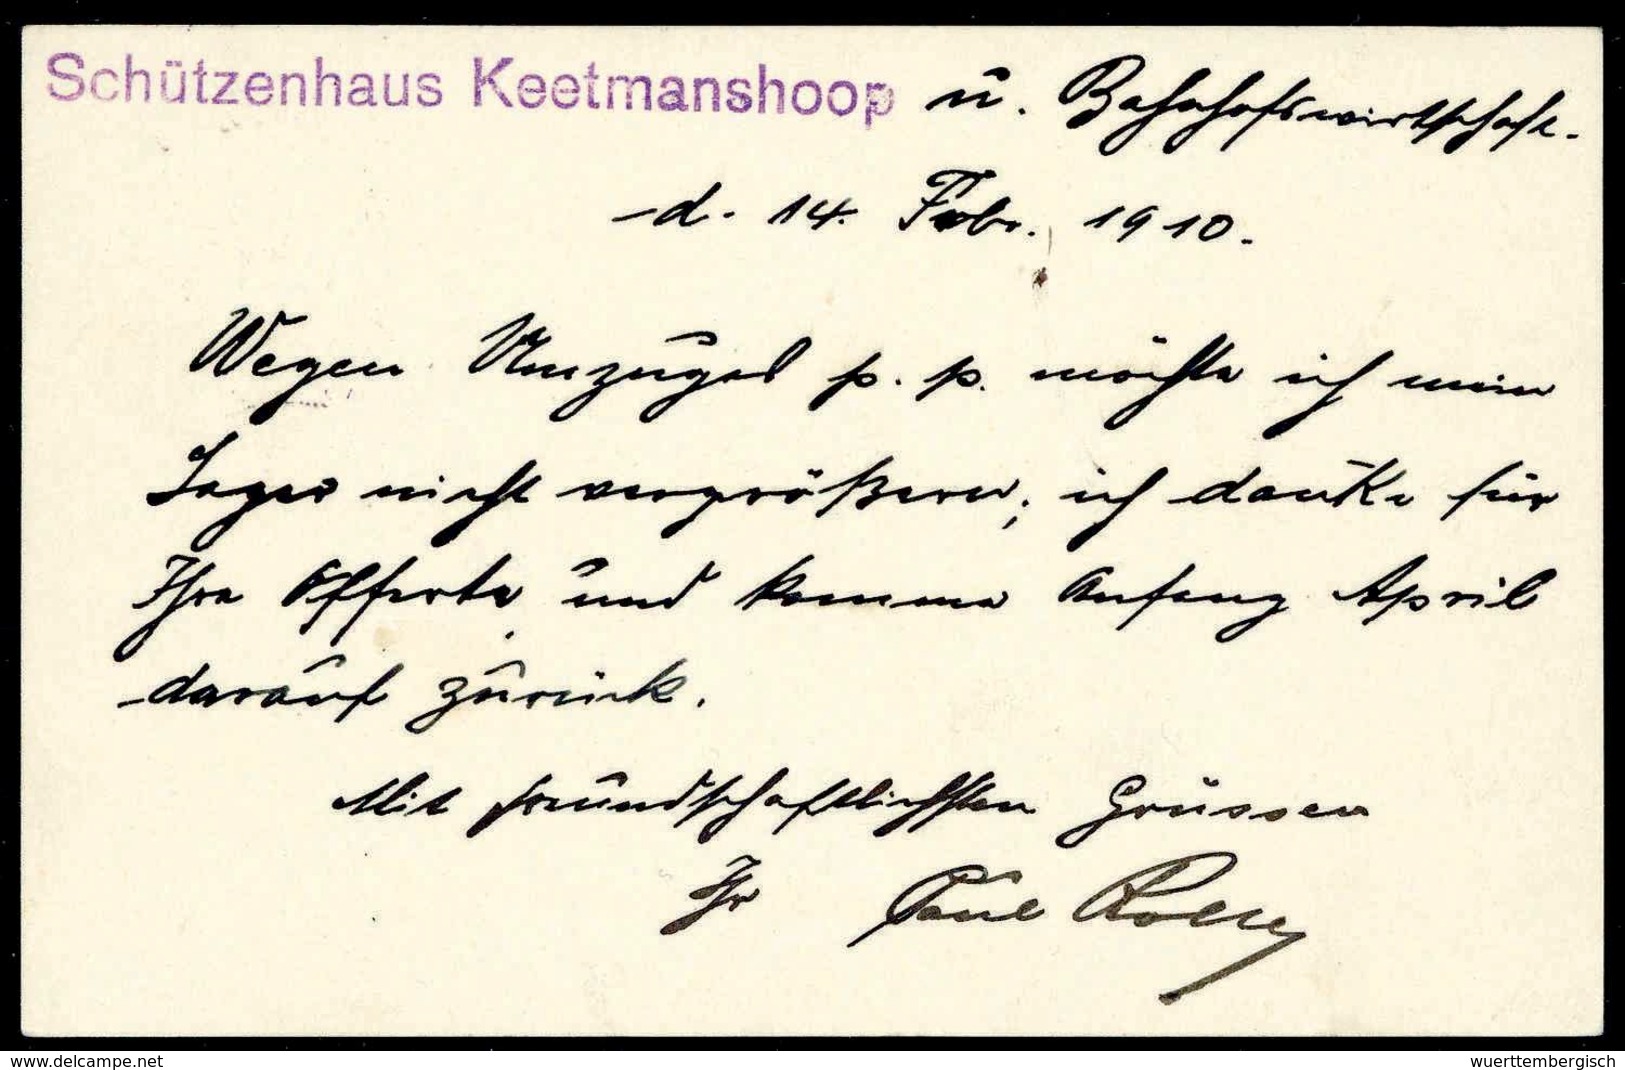 Schützenhaus Keetmanshoop u. Bahnhofswirtschaft.
d. 14. Febr. 1910.
Wegen Umzuges p. p. möchte ich mein
Lager nicht vergrößern; ich danke für
Ihre Offerte und komme Anfang April
darauf zurück.
Mit freundschaftlichsten Grüssen
Ihr Paul
www.delcampe.net
wuerttembergisch